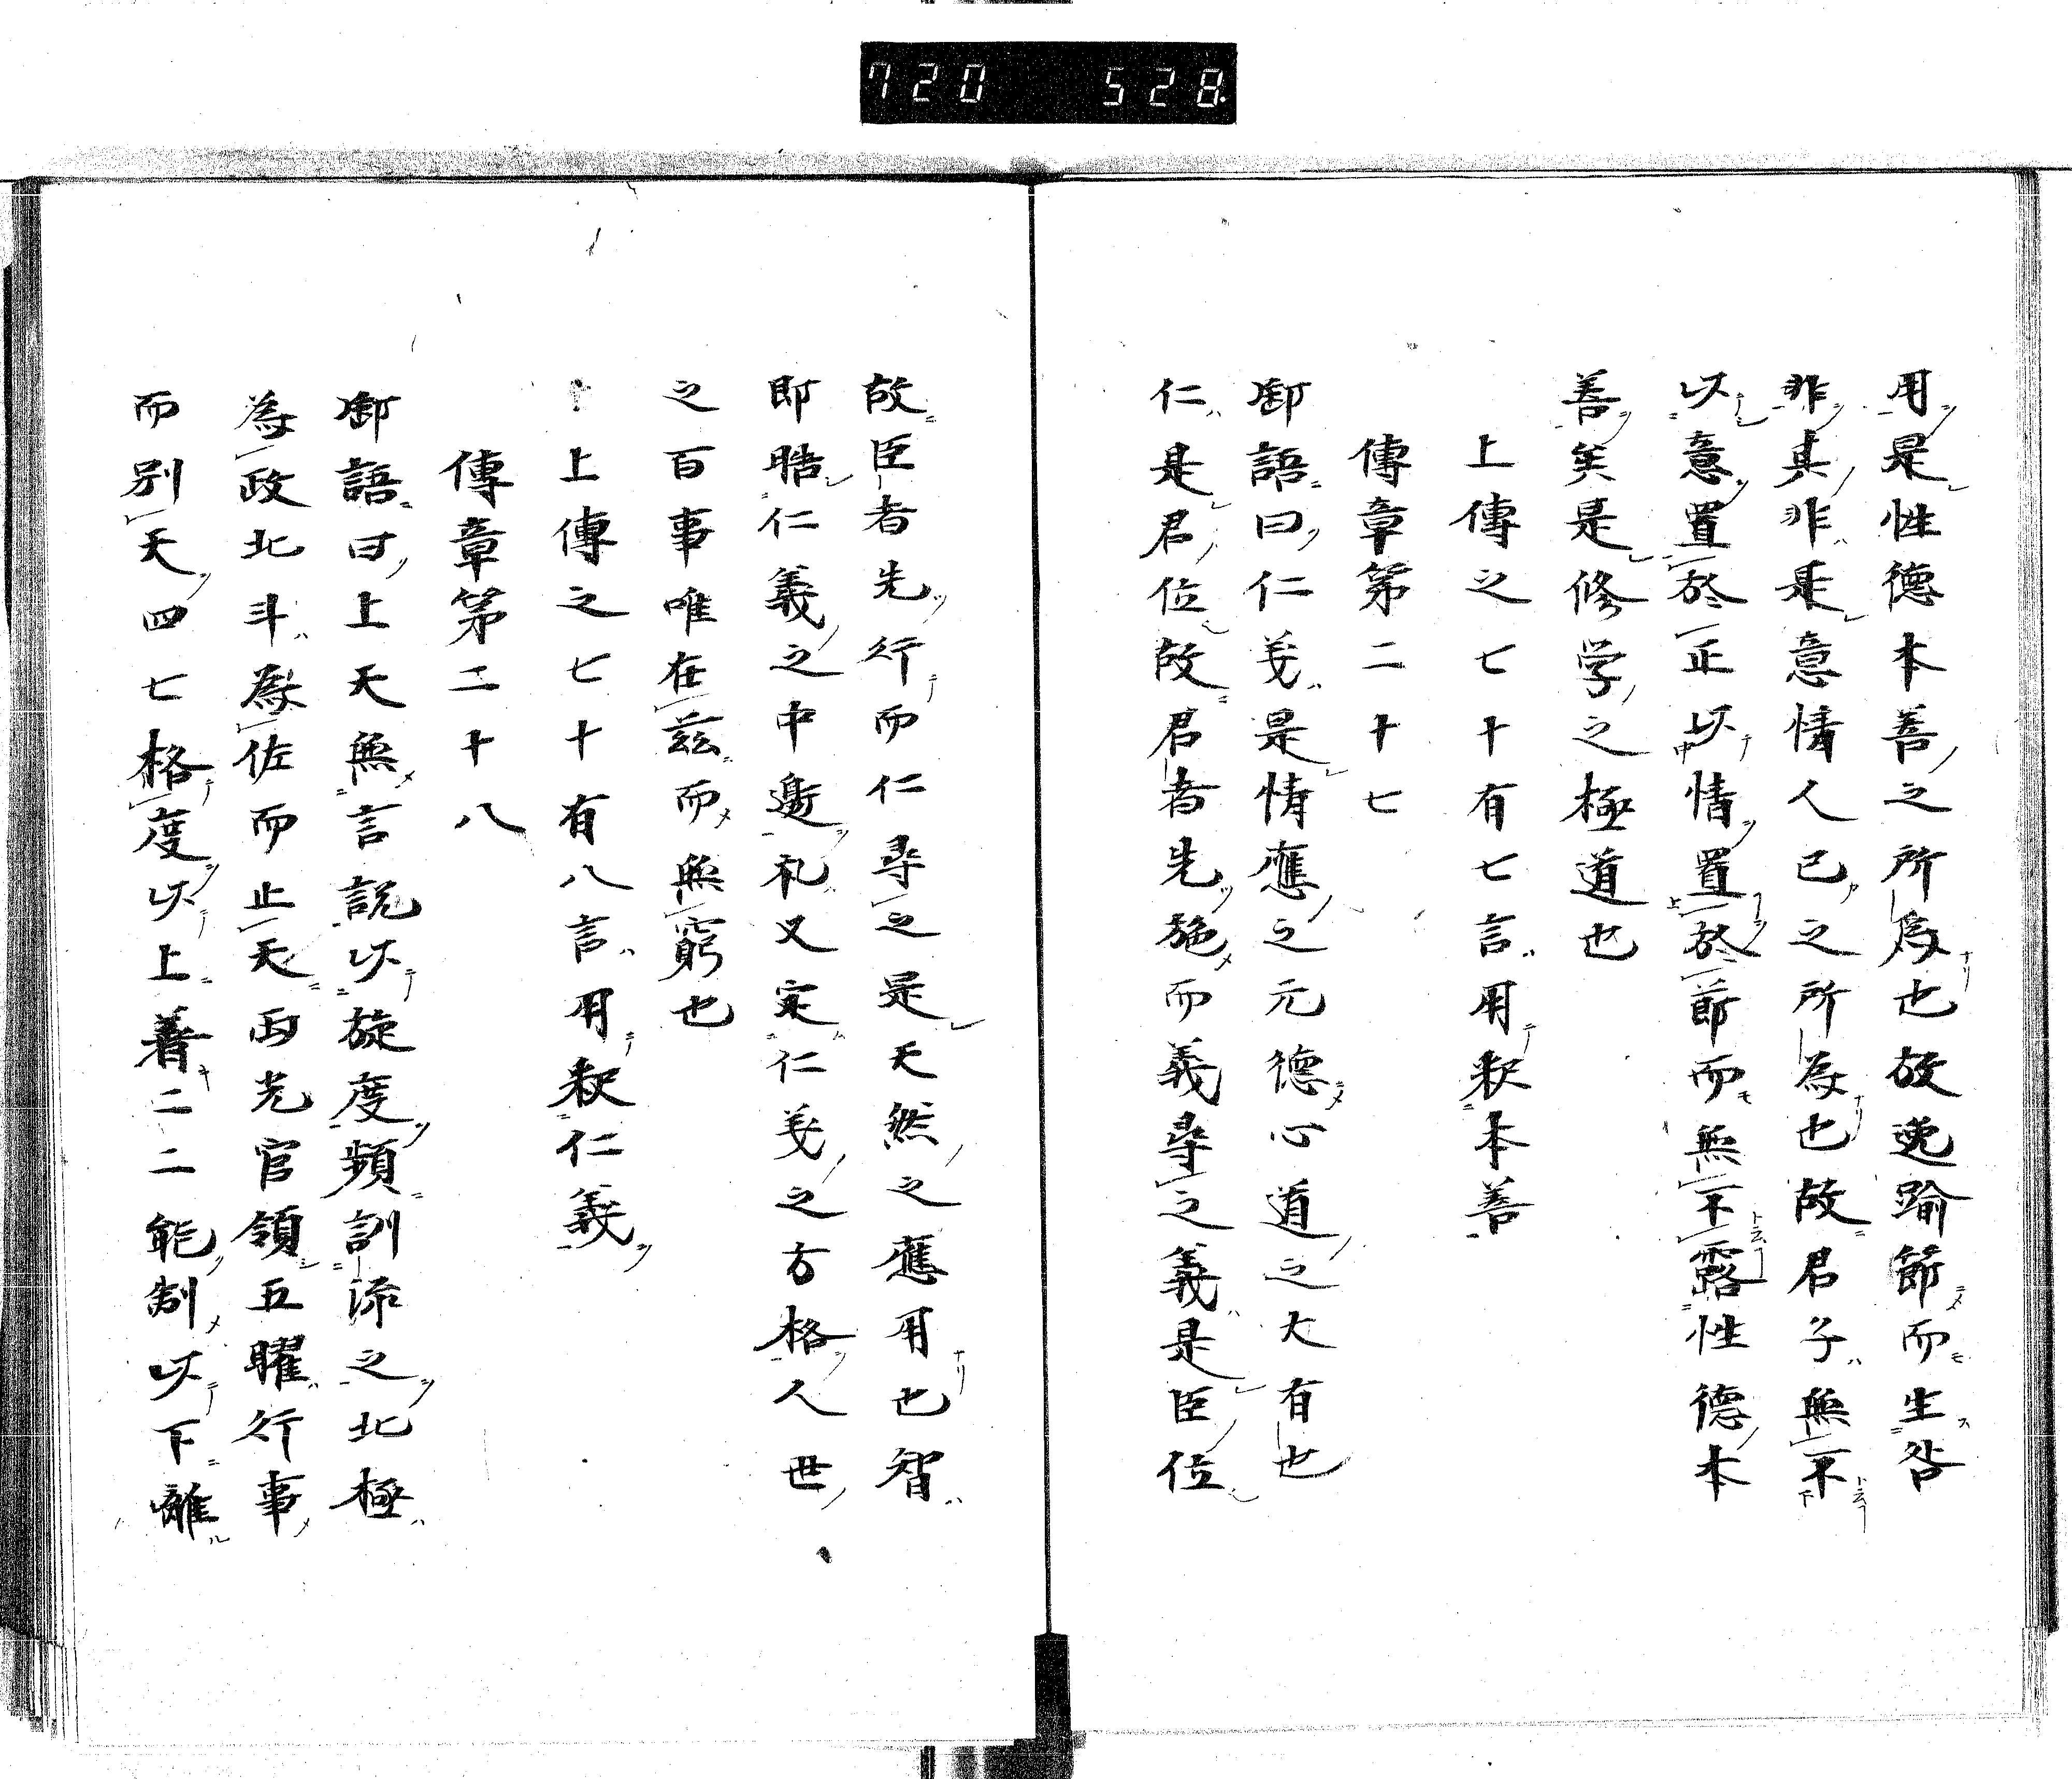 720 528
用是性德本善之所為也故逸踰節而生咎
非真非是意情人已之所為也故君子無不
以意置於正以情置於節而無不露性德本
善矣是修学之極道也
上傳之七十有七言用釈本善
傳章第二十七
御語曰仁義是情應之元德心道之大有也
仁是君位故君者先施而義尋之義是臣位
故臣者先行而仁尋之是天然之應用也智
即晧仁義之中邀礼又定仁義之方格人世
之百事唯在茲而無窮也
上傳之七十有八言用釈仁義
傳章第二十八
御語曰上天無言說以旋度頻訓流之北極
為政北斗為佐而止天両光官領五曜行事
而別天四七格度以上善二二能制以下離